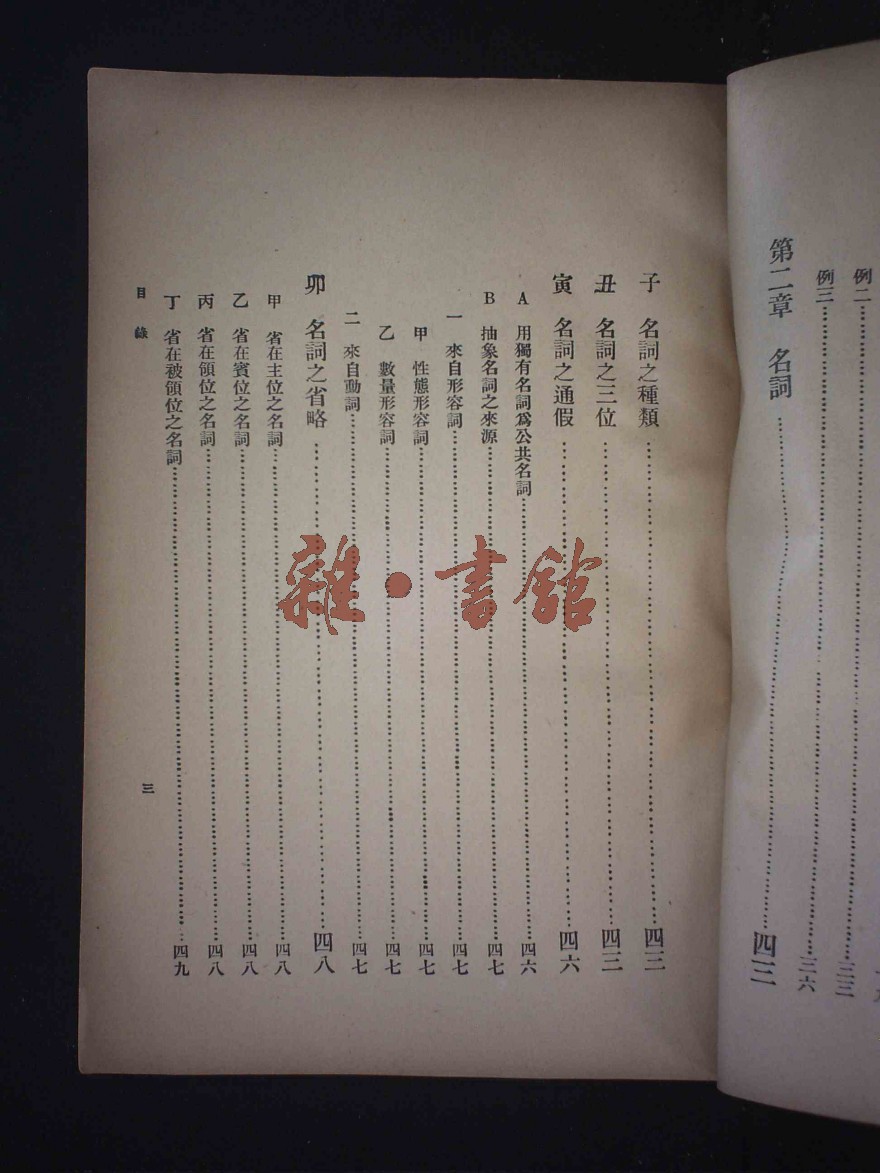 例二……三三
例三……三六
第二章　名詞……四三
子　名詞之種類……四三
丑　名詞之三位……四三
寅　名詞之通假……四六
A　用獨有名詞爲公共名詞……四六
B　抽象名詞之來源……四七
一　來自形容詞……四七
甲　性態形容詞……四七
乙　數量形容詞……四七
二　來自動詞……四七
卯　名詞之省略……四八
甲　省在主位之名詞……四八
乙　省在賓位之名詞……四八
丙　省在領位之名詞……四八
丁　省在被領位之名詞……四九
目錄
三
雜·書館